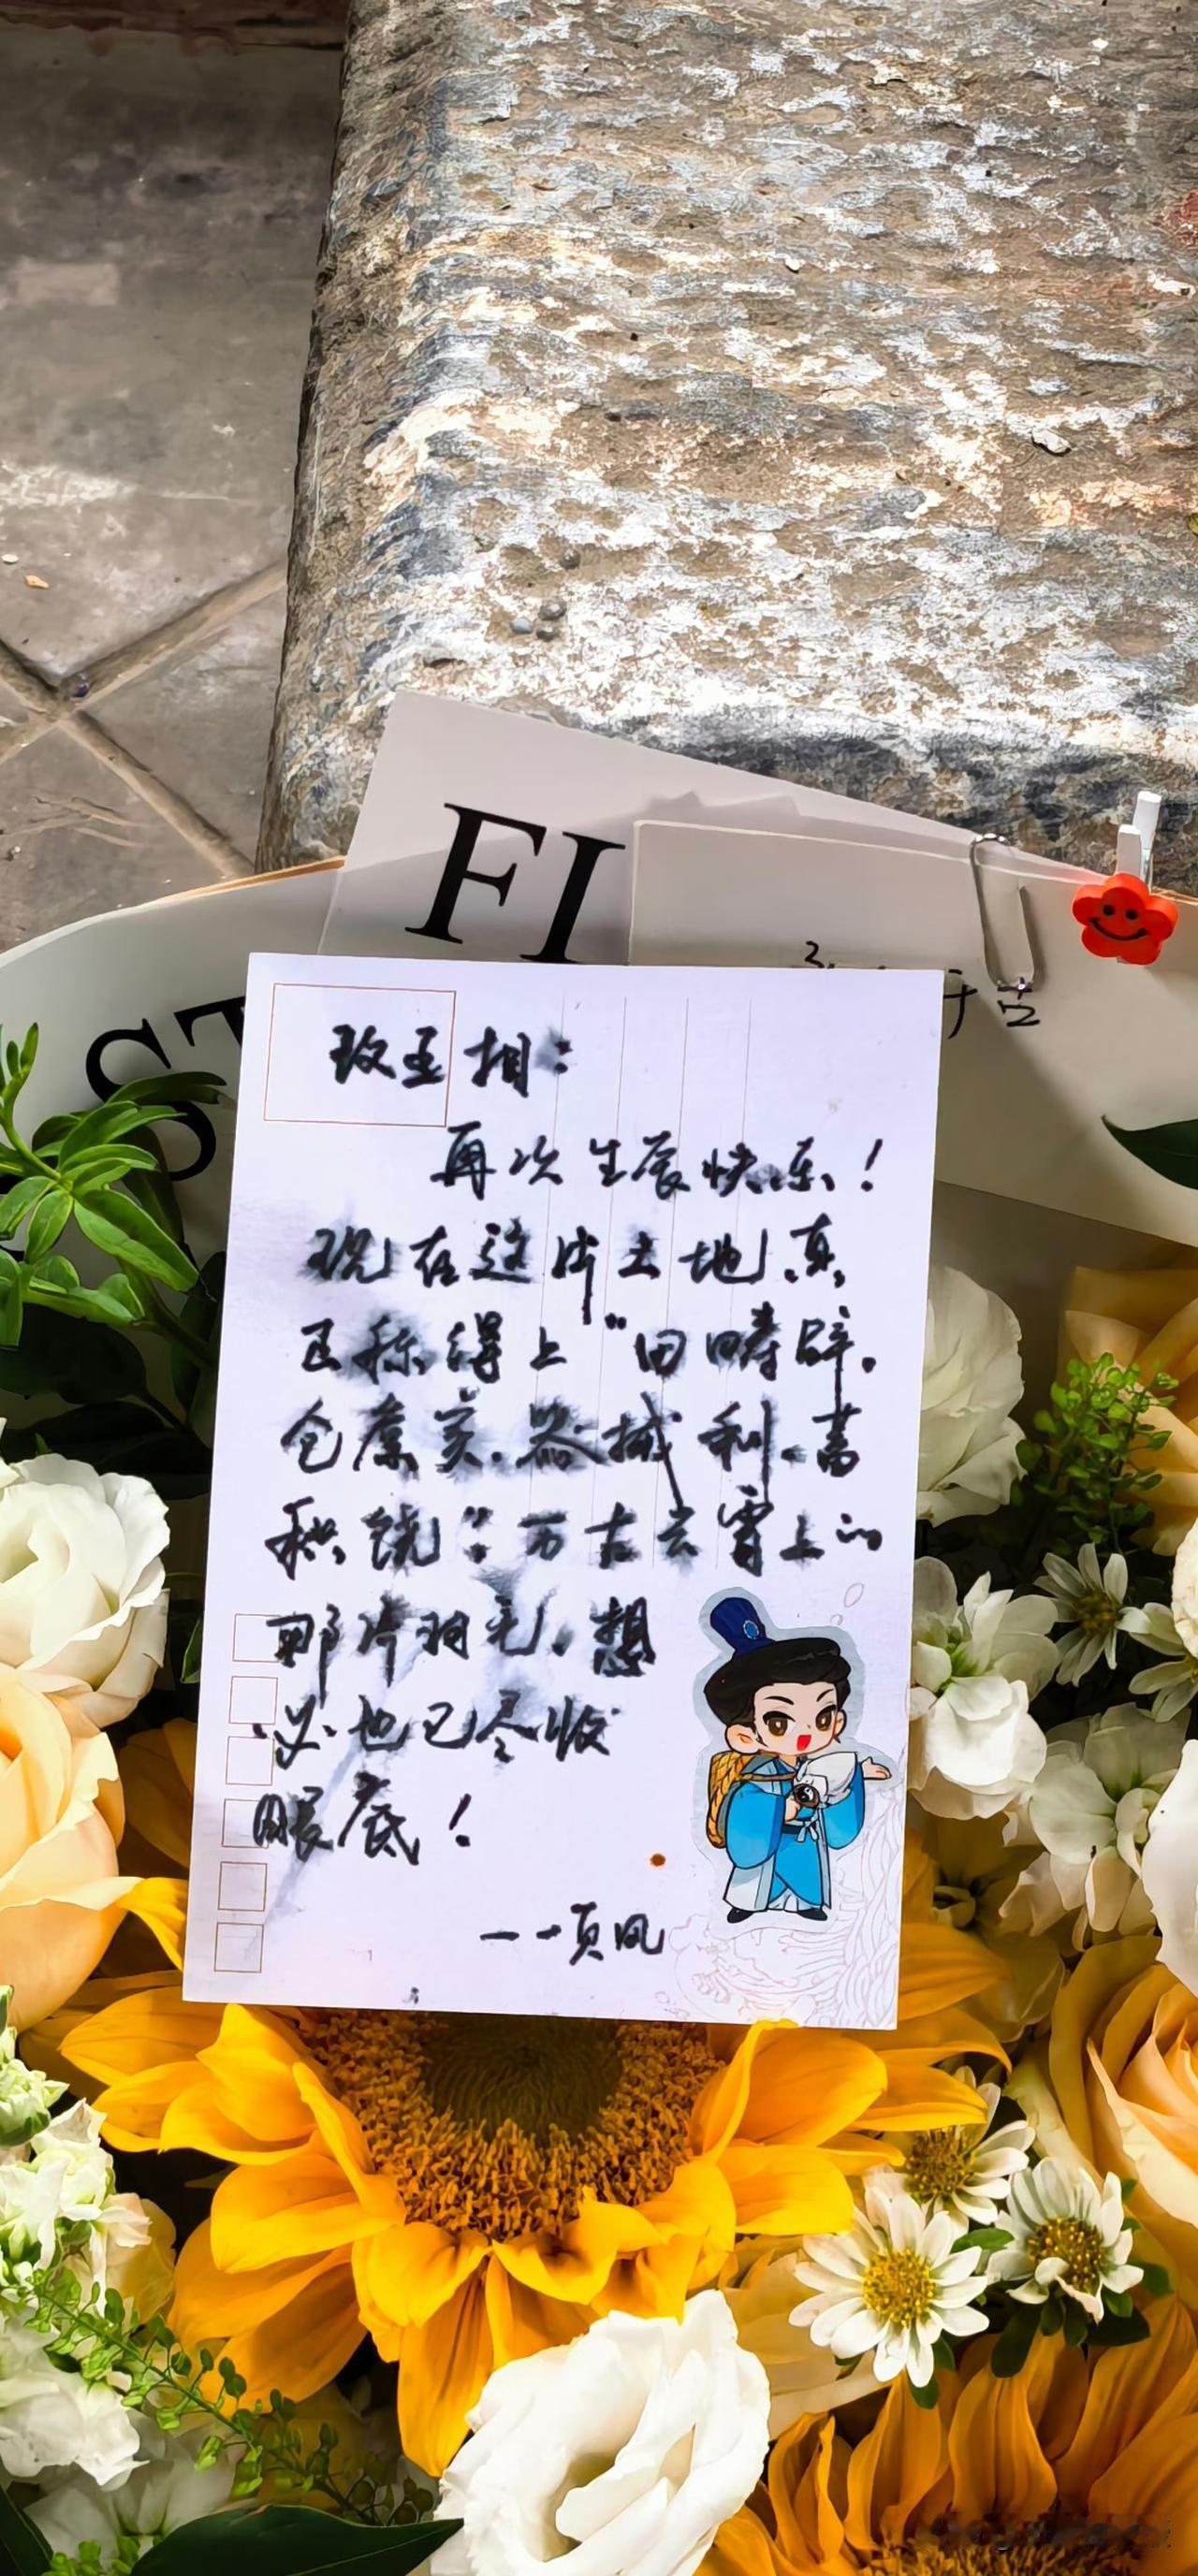 FI
ST
致丞相：
再次生辰快乐！
现在这片土地，真
正称得上“田畴辟，
仓廪实，器械利，蓄
积饶”；万古云霄上的
那片羽毛，想
必也已尽收
眼底！